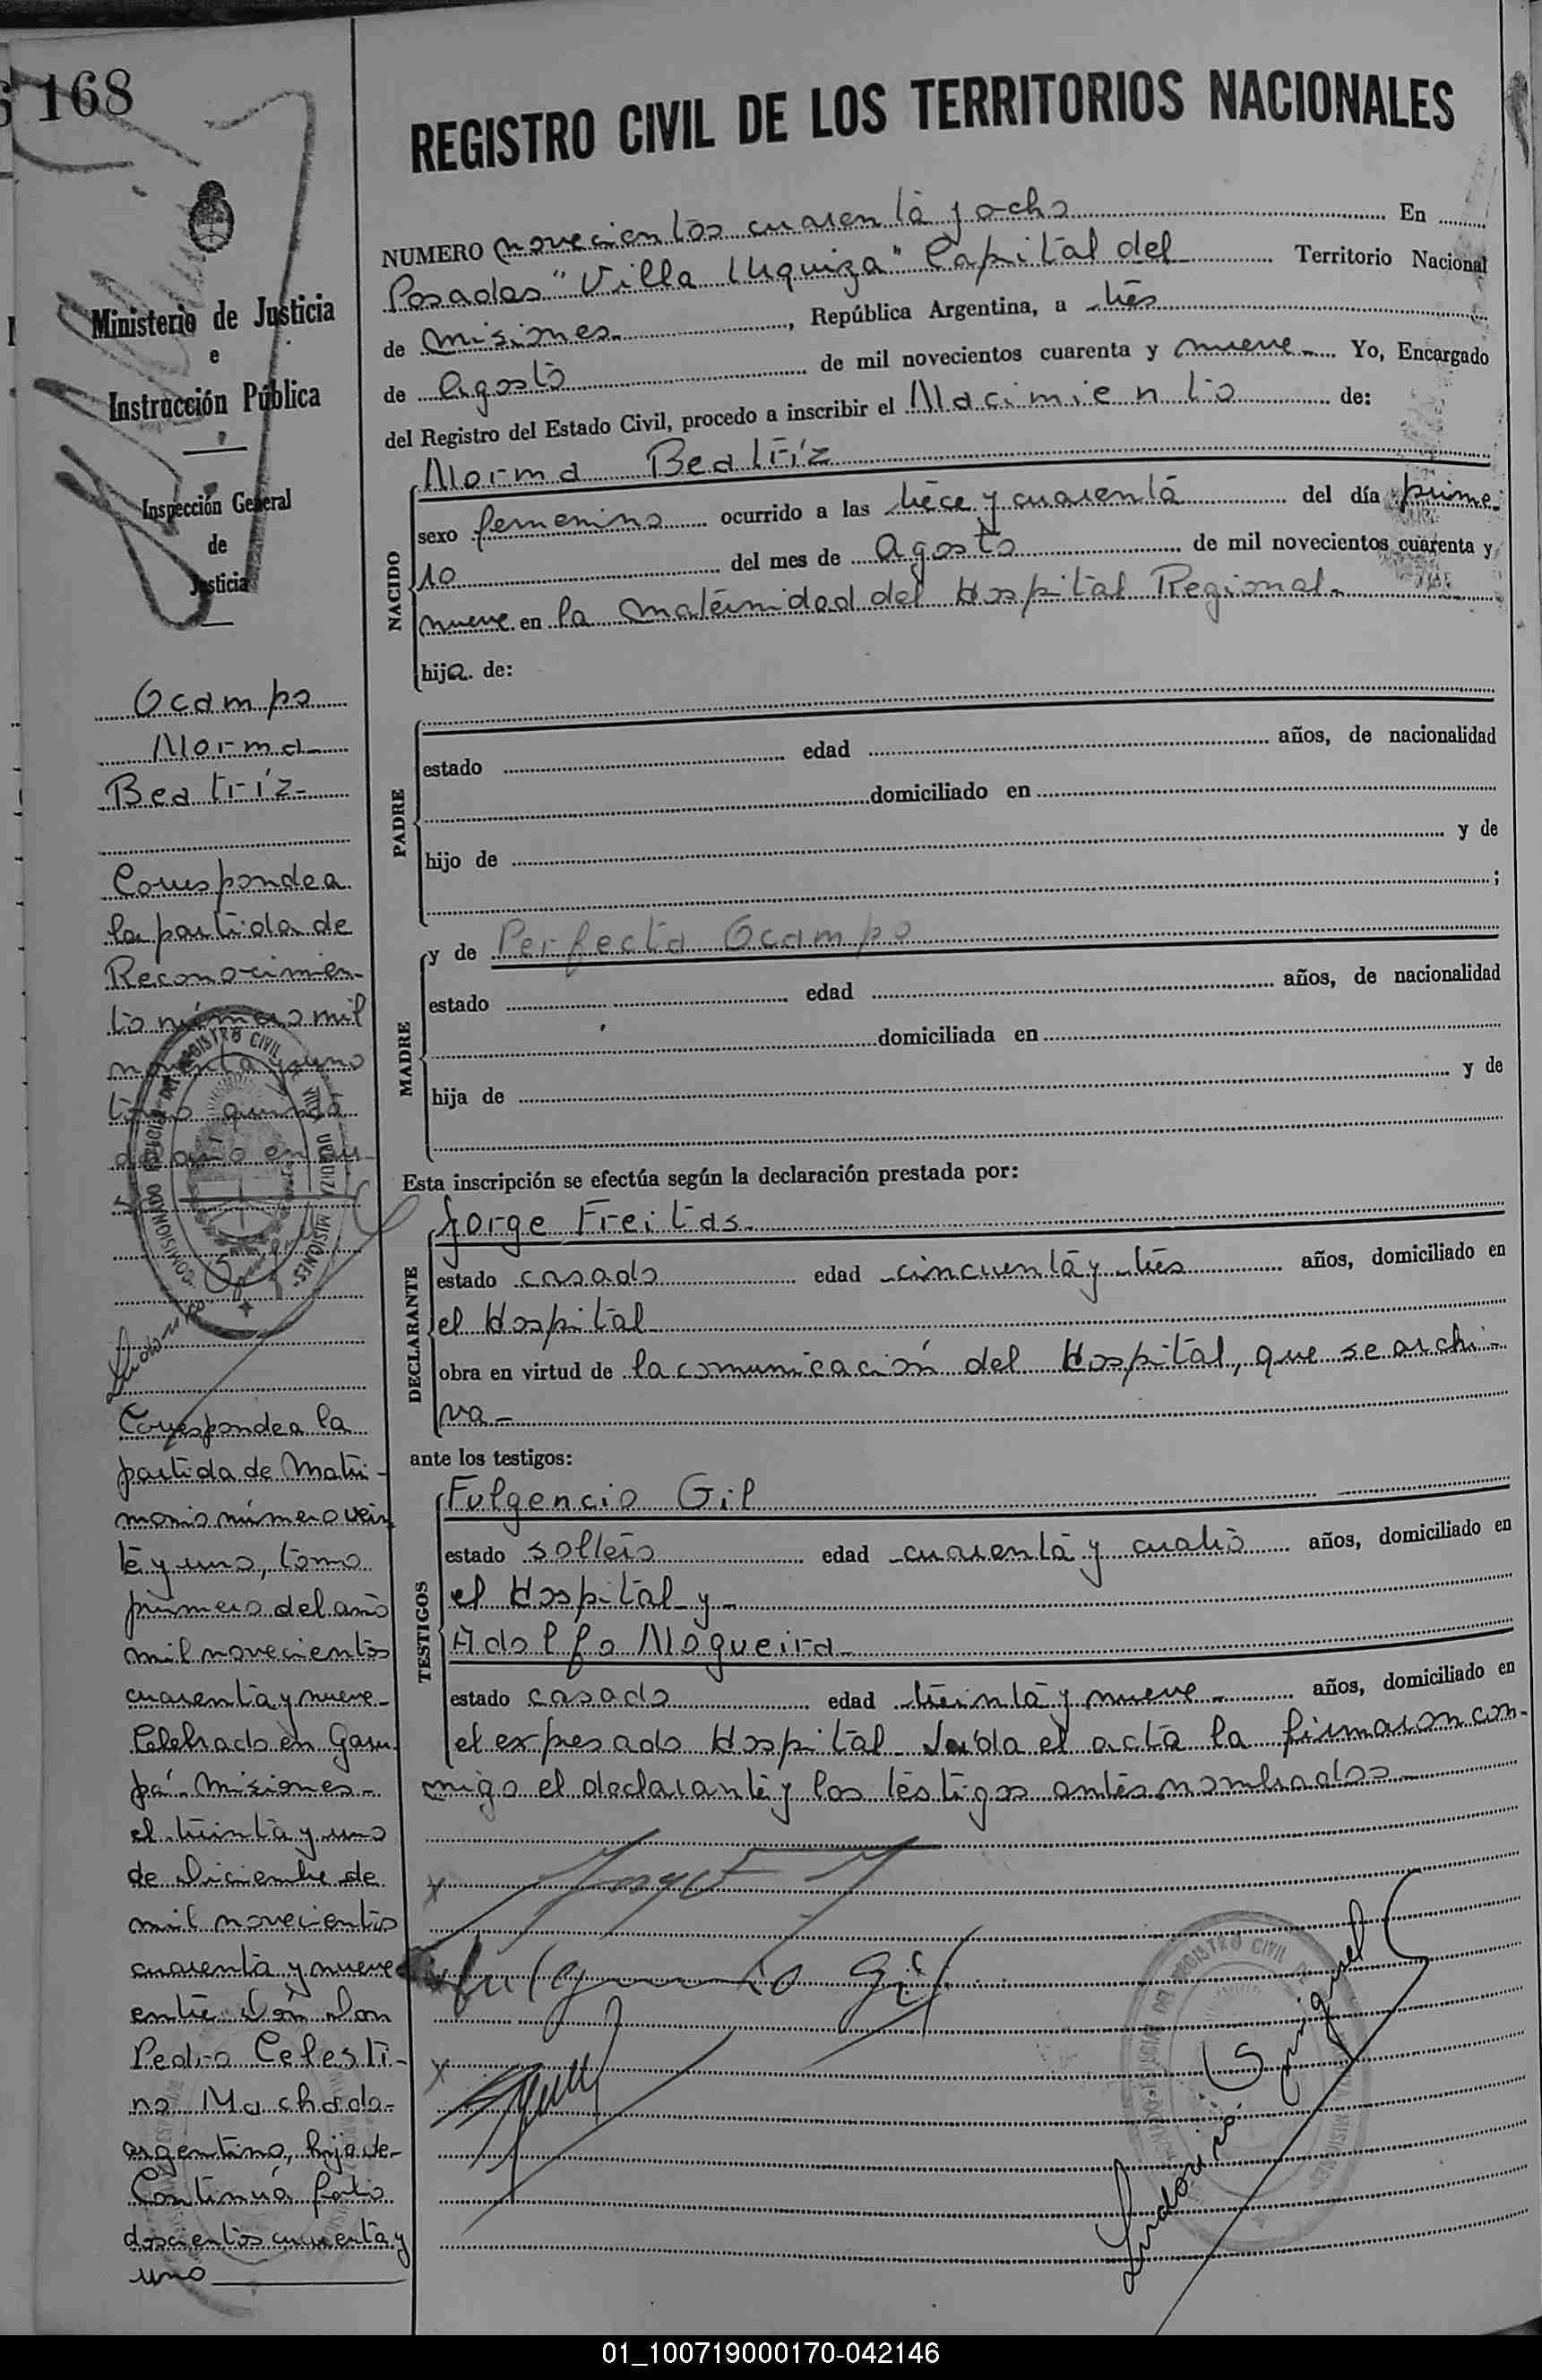 168
REGISTRO CIVIL DE LOS TERRITORIOS NACIONALES
Ministerio de Justicia
e
Instrucción Pública
Inspección General
de
Justicia
NUMERO novecientos cuarenta y ocho En
Posadas "Villa Urquiza" Capital del Territorio Nacional
de Misiones, República Argentina, a tres
de Agosto de mil novecientos cuarenta y nueve Yo, Encargado
del Registro del Estado Civil, procedo a inscribir el Nacimiento de:
Norma Beatríz
NACIDO
sexo femenino ocurrido a las trece y cuarenta del día prime
ro del mes de Agosto de mil novecientos cuarenta y
nueve en la Maternidad del Hospital Regional
hija de:
PADRE
estado edad años, de nacionalidad
domiciliado en
hijo de y de
;
MADRE
y de Perfecta Ocampo
estado edad años, de nacionalidad
domiciliada en
hija de y de
Esta inscripción se efectúa según la declaración prestada por:
DECLARANTE
Jorge Freitas
estado casado edad cincuenta y tres años, domiciliado en
el Hospital
obra en virtud de la comunicación del Hospital, que se archi
va
ante los testigos:
TESTIGOS
Fulgencio Gil
estado soltero edad cuarenta y cuatro años, domiciliado en
el Hospital y
Adolfo Nogueira
estado casado edad treinta y nueve años, domiciliado en
el expresado Hospital Leída el acta la firmaron con
migo el declarante y los testigos antes nombrados
Fulgencio Gil
Ocampo
Norma
Beatríz
Corresponde a
la partida de
Reconocimien-
to número mil
noventa y uno
tomo
del año en cur-
so
REGISTRO CIVIL
VILLA URQUIZA
MISIONES
Corresponde a la
partida de Matri-
monio número vein
te y uno, tomo
primero del año
mil novecientos
cuarenta y nueve
Celebrado en Garu
pá - Misiones -
el treinta y uno
de Diciembre de
mil novecientos
cuarenta y nueve
entre Don
Pedro Celesti-
no Machado
argentino, hijo de
Continúa folio
doscientos cuarenta y
uno
01_100719000170-042146